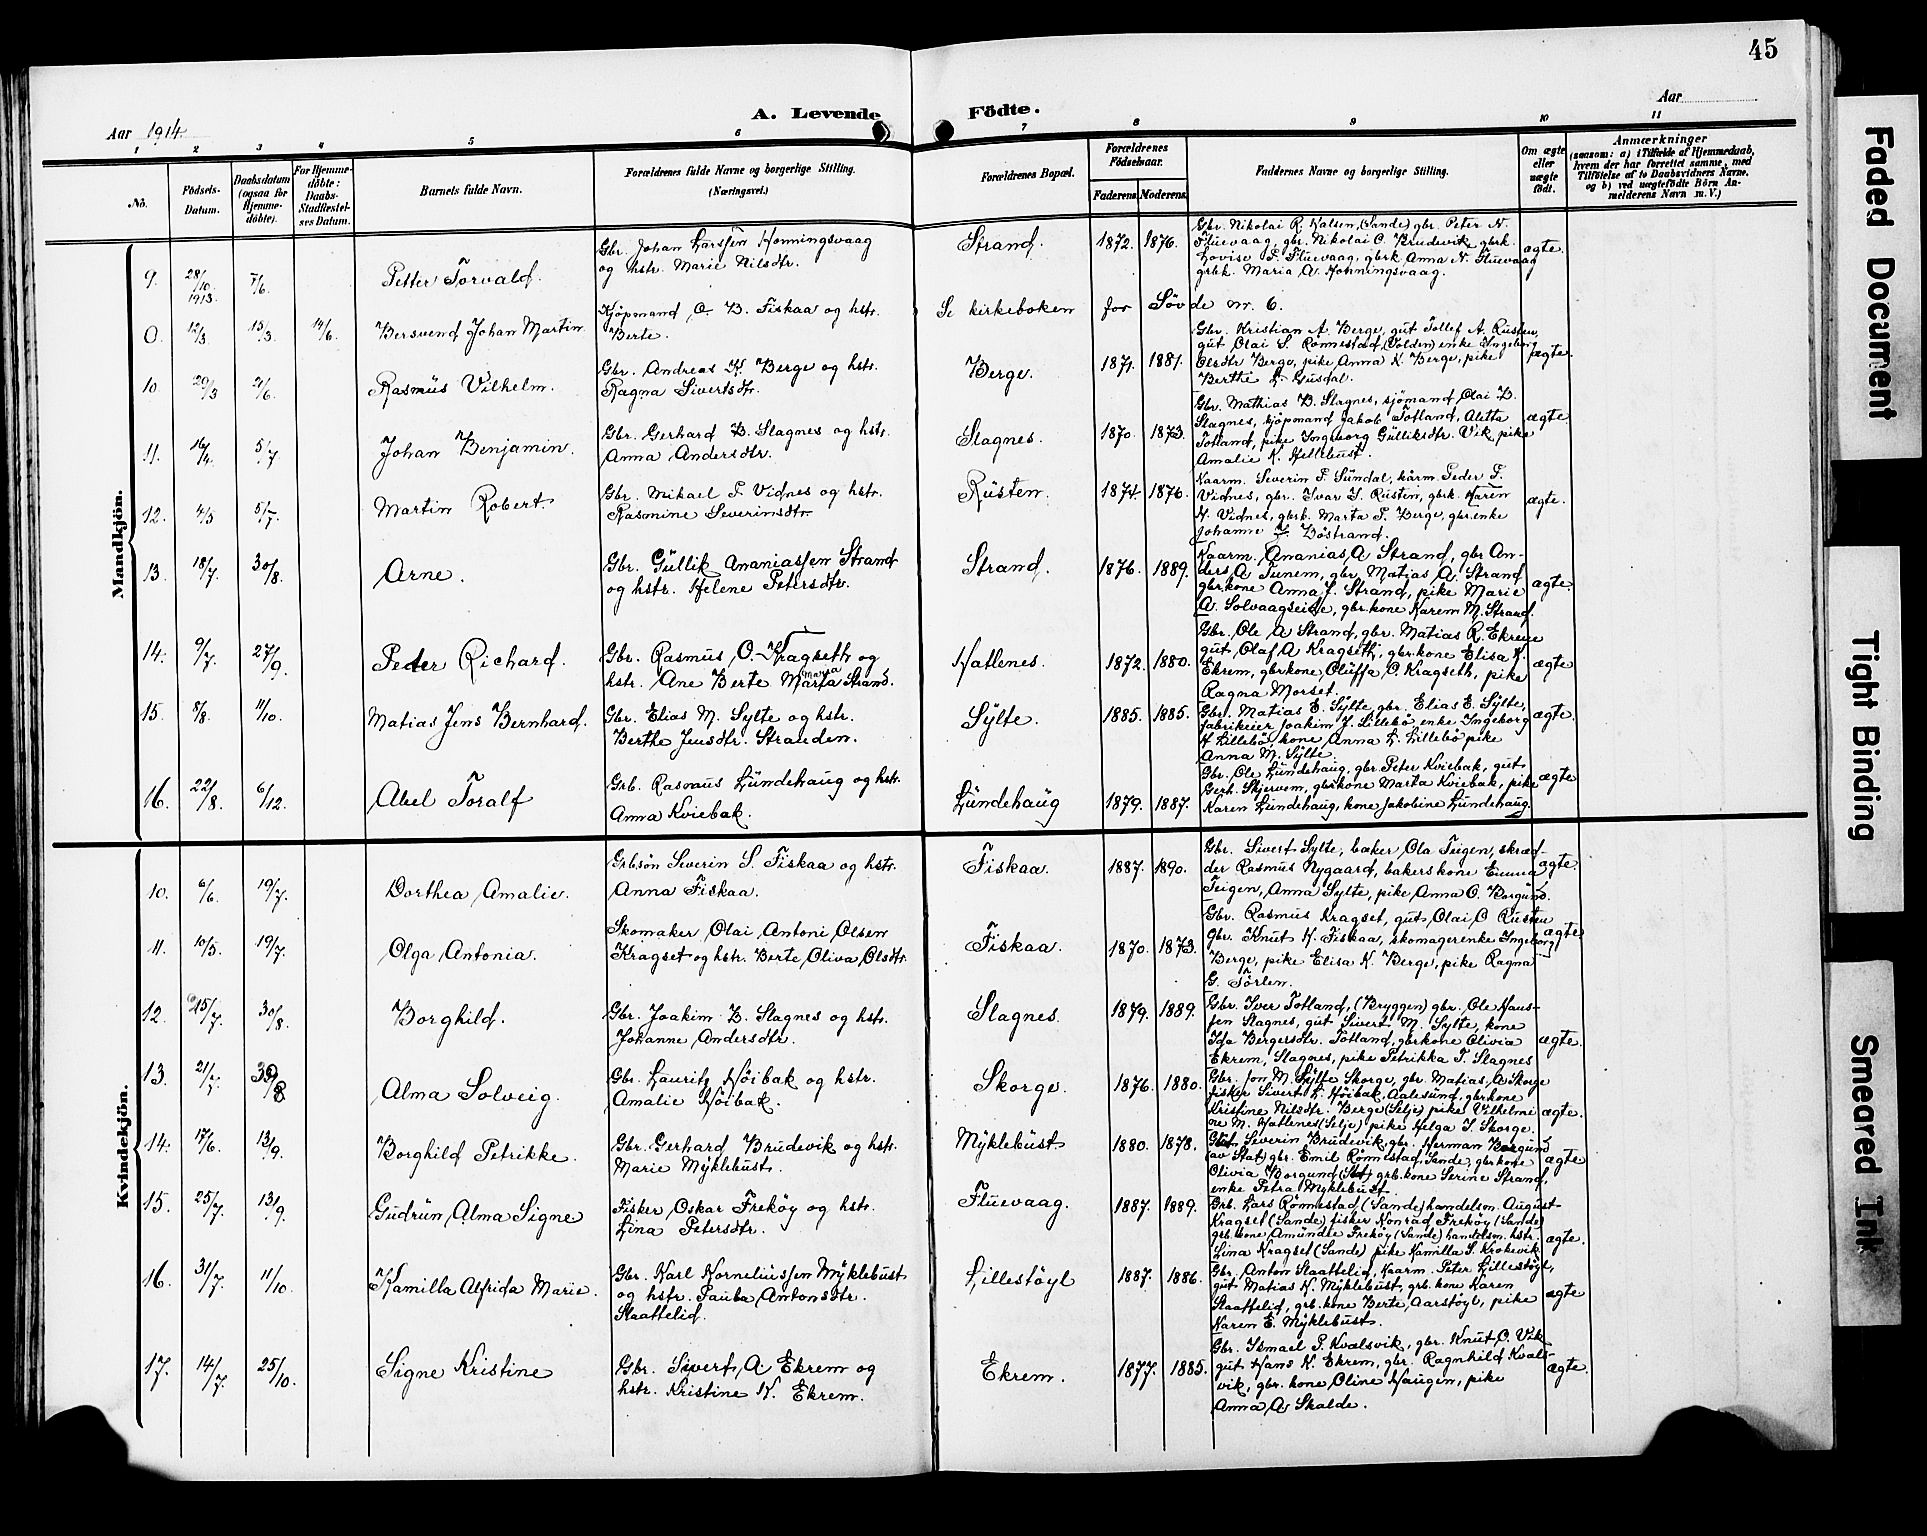 45
Aar 1914.
A. Levende Födte.
Aar
1 2 3 4 5 6 7 8 9 10 11
No.
Födsels-Datum.
Daabsdatum (ogsaa for Hjemme-döbte).
For Hjemme-döbte: Daabs-Stadfæstel-ses Datum.
Barnets fulde Navn.
Forældrenes fulde Navne og borgerlige Stilling.
(Næringsvei.)
Forældrenes Bopæl.
Forældrenes Födselsaar.
Faderens. Moderens.
Faddernes Navne og borgerlige Stilling.
Om ægte eller uægte födt.
Anmærkninger
(saasom: a) i Tilfælde af Hjemmedaab,
hvem der har forrettet samme, med
Tilföielse af to Daabsvidners Navne.
og b) ved uægtefödte Börn An-
melderens Navn m. V.)
Mandkjön.
9. 28/10 1913. 7/6. Petter Torvald.
Gbr. Johan Larssen Honningsvaag
og hstr. Marie Nilsdtr.
Strand. 1872. 1876.
Gbr. Nikolai R. Kalsen, (Sande) gbr. Peter N.
Fluevaag, gbr. Nikolai O. Brudevik, gbrk.
Lovise P. Fluevaag, gbrk Anna N. Fluevaag
grbk. Maria A. Honningsvaag.
ægte.
0. 12/3 15/3 14/6 Bersvend Johan Martin.
Kjøpmand O. B. Fiskaa og hstr.
Berte.
Se kirkeboken for Søvde nr. 6.
10. 29/3 21/6. Rasmus Vilhelm.
Gbr. Andreas K. Berge og hstr.
Ragna Sivertsdtr.
Berge. 1871. 1881.
Gbr. Kristian A. Berge, gut Tollef A. Rusten,
gut Olai S. Rønnestad, (Volden) enke Ingeborg
Olsdtr Berge, pike Anna K. Berge, pike
Berthe L. Gusdal.
ægte.
11. 16/4. 5/7 Johan Benjamin.
Gbr. Gerhard B. Slagnes og hstr.
Anna Andersdtr.
Slagnes. 1870. 1873.
Gbr. Mathias B. Slagnes, sjömand Olai B.
Slagnes, kjöpmand Jakob Totland, Aletta
Totland, pike Ingeborg Gulliksdtr. Vik, pike
Amalie K. Hellebust.
ægte.
12. 4/5 5/7. Martin Robert.
Gbr. Mikael P. Vidnes og hstr.
Rasmine Severinsdtr.
Rusten. 1874. 1876.
Kaarm. Severin P. Sundal, kårm. Peder P.
Vidnes, gbr. Ivar S. Rusten, gbrk. Karen
N. Vidnes, gbrk. Marta P. Berge, gbr.enke
Johanne J. Böstrand.
ægte.
13. 18/7. 30/8. Arne.
Gbr. Gullik Ananiassen Strand
og hstr. Helene Petersdtr.
Strand. 1876. 1889.
Kaarm. Ananias A Strand, gbr An-
ders A Tunem, gbr Matias A. Strand
gbr.kone Anna J. Strand, pike Marie
A. Solvaagseide, gbr.kone Karem M. Strand.
ægte.
14. 9/7. 27/9. Peder Richard.
Gbr. Rasmus O. Kragseth og
hstr. Ane Berte Marta Strand.
Hatlenes. 1872. 1880.
Gbr. Ole A Strand, gbr. Matias R. Ekrene
gut Olaf A Kragseth, gbrkone Elisa K.
Ekrem, gbrkone Oluffa O. Kragseth, pike
Ragna Morset.
ægte
15. 8/8. 11/10. Matias Jens Bernhard.
Gbr. Elias M. Sylte og hstr.
Berthe Jensdtr. Stranden.
Sylte. 1885. 1885.
Gbr. Matias E. Sylte gbr. Elias E. Sylte,
fabrikeier Joakim J. Lillebö, enke Ingeborg
H Lillebö, kone Anna L. Lillebö pike
Anna M. Sylte.
ægte.
16. 22/8. 6/12. Abel Toralf
Grb. Rasmus Lundehaug og hstr.
Anna Kviebak.
Lundehaug 1879. 1887.
Gbr. Ole Lundehaug, gbr. Peter Kviebak, gut
Gerh. Skjervem, gbrkone Marta Kviebak, pike
Karen Lundehaug, kone Jakobine Lundehaug.
ægte
Kvindekjön.
10. 6/6. 19/7. Dorthea Amalie.
Grbsön Severin S. Fiskaa og hstr.
Anna Fiskaa.
Fiskaa. 1887. 1890.
Gbr. Sivert Sylte, baker Ola Teigen, skræd-
der Rasmus Nygaard, bakers kone Emma
Teigen, Anna Sylte, pike Anna O. Borgund.
ægte.
11. 10/5. 19/7. Olga Antonia.
Skomaker Olai Antoni Olsen
Kragset og hstr. Berte Oliva Olsdtr.
Fiskaa. 1870. 1873.
Gbr. Rasmus Kragset, gut Olai O Rusten
gbr. Knut K. Fiskaa, skomagerenke Ingeborg
Berge, pike Elisa K. Berge, pike Ragna
G. Törlen.
ægte
12. 15/7. 30/8. Borghild.
Gbr. Joakim B. Slagnes og hstr.
Johanne Andersdtr.
Slagnes 1879. 1889.
Gbr. Iver Totland, (Bryggen) gbr. Ole Hans-
sen Slagnes, gut Sivert M. Sylte, kone
Ida Bergersdtr. Totland, gbrkone Olivia
Ekrem, Slagnes, pike Petrikka T. Slagnes
ægte.
13. 21/7. 30/8 Alma Solveig.
Gbr. Lauritz Höibak og hstr.
Amalie Höibak.
Skorge. 1876. 1880.
Gbr. Jon M. Sylte Skorge, gbr. Matias A Skorge
fisker Sivert L. Höibak, Aalesund, gbrkone
Kristine Nilsdtr. Berge (Selje) pike Vilhelmi
ne M. Hatlenes (Selje) pike Helga I. Skorge.
ægte.
14. 17/6. 13/9. Borghild Petrikke.
Gbr. Gerhard Brudevik og hstr.
Marie Myklebust.
Myklebust 1880. 1878.
Gut Severin Brudevik, gbr. Herman Borgund
(av Stat) gbr. Emil Rønnestad, Sande, gbrkone
Olivia Borgund (Stat) grb.kone Serine Strand,
enke Petra Myklebust.
ægte
15. 25/7. 13/9. Gudrun Alma Signe
Fisker Oskar Freköy og hstr.
Lina Petersdtr.
Fluevaag. 1887. 1889.
Grb. Lars Rønnestad (Sande) handelsm. August
Kragset (Sande) fisker Konrad Freköy (Sande)
grb.kone Amundte Freköy (Sande) handelsm. hstr.
Lina Kragset (Sande) pike Kamilla S. Krokevik
ægte.
16. 31/7. 11/10. Kamilla Alfrida Marie.
Gbr. Karl Korneliussen Myklebust
og hstr. Paula Antonsdtr.
Slaattelid.
Lillestöyl 1887. 1886.
Gbr. Anton Slaattelid, kaarm. Peter Lillestöyl,
gut Matias K. Myklebust, grb.kone Karen
Slaattelid, grb.kone Berte Aarstöyl, pike
Karen E. Myklebust.
ægte
17. 14/7 25/10. Signe Kristine
Gbr. Sivert A Ekrem og
hstr. Kristine K. Ekrem.
Ekrem. 1877. 1885.
Gbr. Ismael P. Kvalsvik, gbr. Knut O. Vik
gut Hans K. Ekrem, gbr. Ragnhild Kvals-
vik, gbr. kone Oline Haugen, pike
Anna A. Skalde.
ægte.
Faded Document
Tight Binding
Smeared Ink